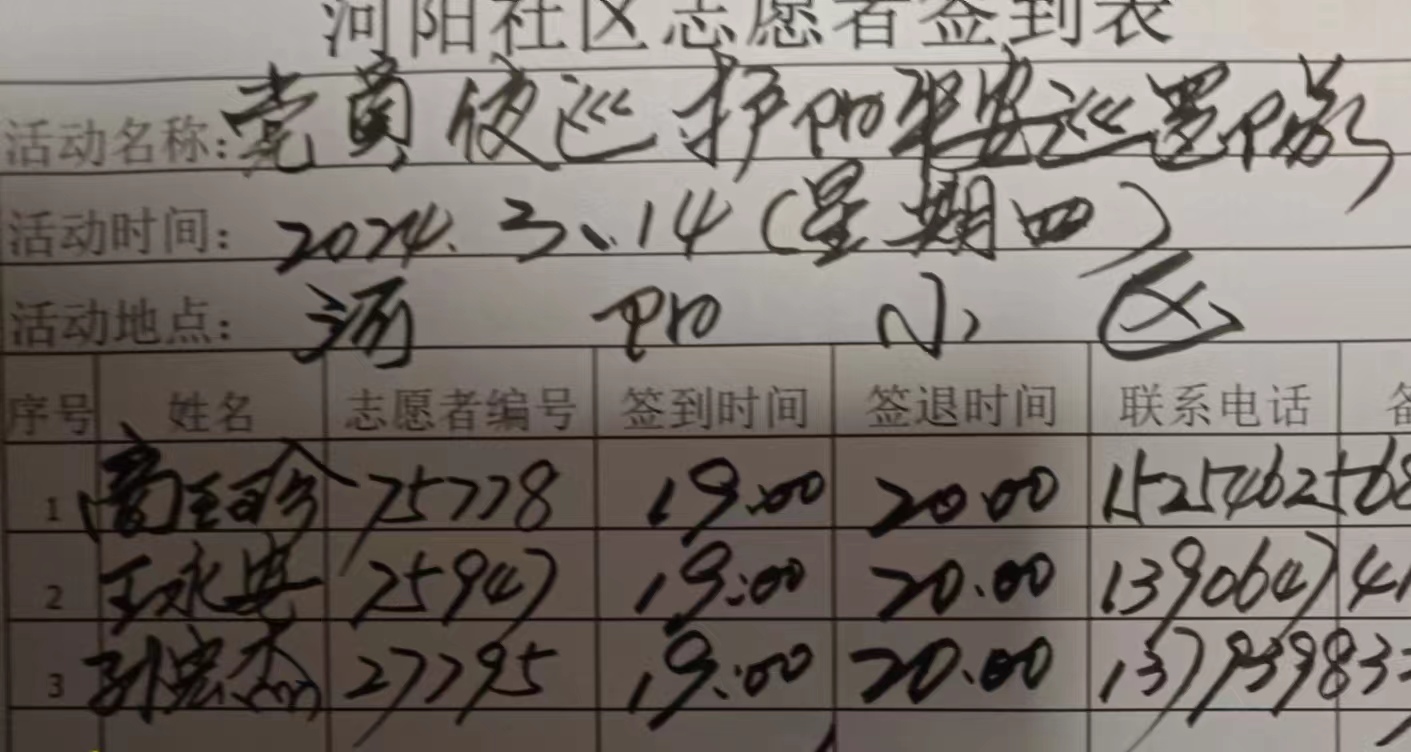 河阳社区志愿者签到表
活动名称:党员夜巡护阳平安巡逻
活动时间:2024.3、14(星期四)
活动地点:河阳小区
序号 姓名 志愿者编号 签到时间 签退时间 联系电话
1 75778 19:00 20.00 15254625768
2 王永安 75947 19:00 20.00 1390647741
3 孙宏杰 27795 19:00 20.00 13793983